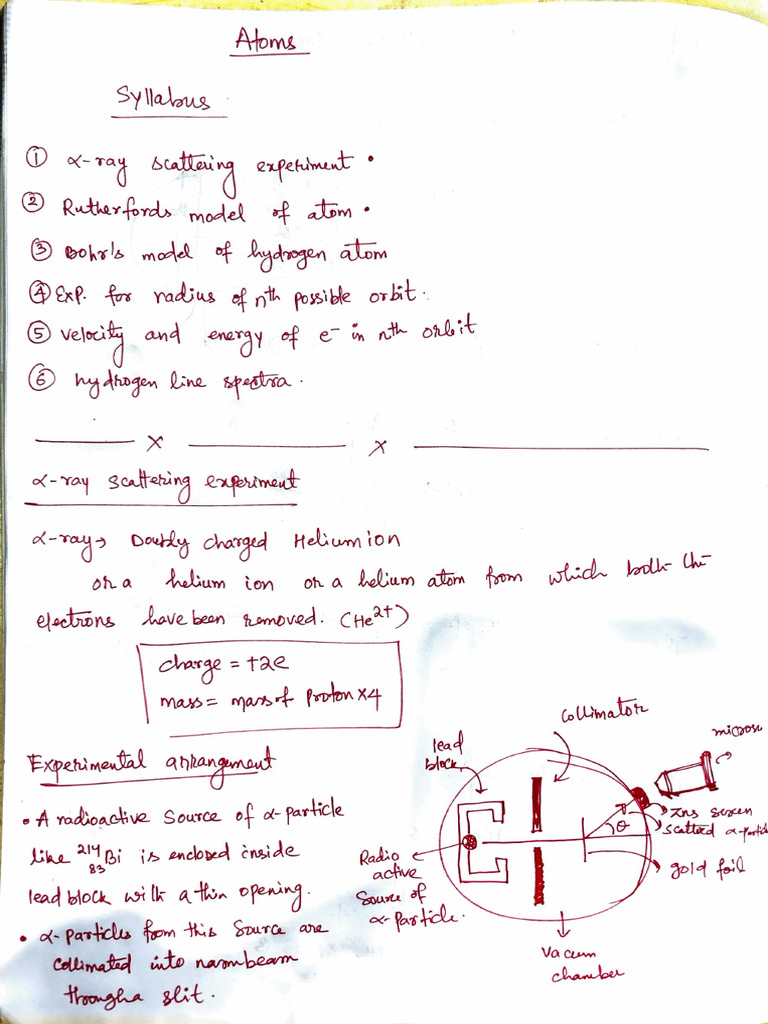 Atoms
Syllabus.
① α-ray scattering experiment •
② Rutherfords model of atom •
③ Bohr's model of hydrogen atom
④ Exp. for radius of nth possible orbit.
⑤ velocity and energy of e⁻ in nth orbit
⑥ hydrogen line spectra.
x x
α-ray scattering experiment
α-ray → Doubly charged Helium ion
or a helium ion or a helium atom from which both the
electrons have been removed. (He²⁺)
charge = +2e
mass = mass of proton x 4
Experimental arrangement
• A radioactive source of α-particle
like ²¹⁴₈₃Bi is enclosed inside
lead block with a thin opening.
• α-particles from this source are
collimated into narrow beam
through a slit.
collimator
lead
block
micros
Zns screen
scatterd α-particle
θ
gold foil
Radio
active
source of
α-particle.
Vacum
chamber